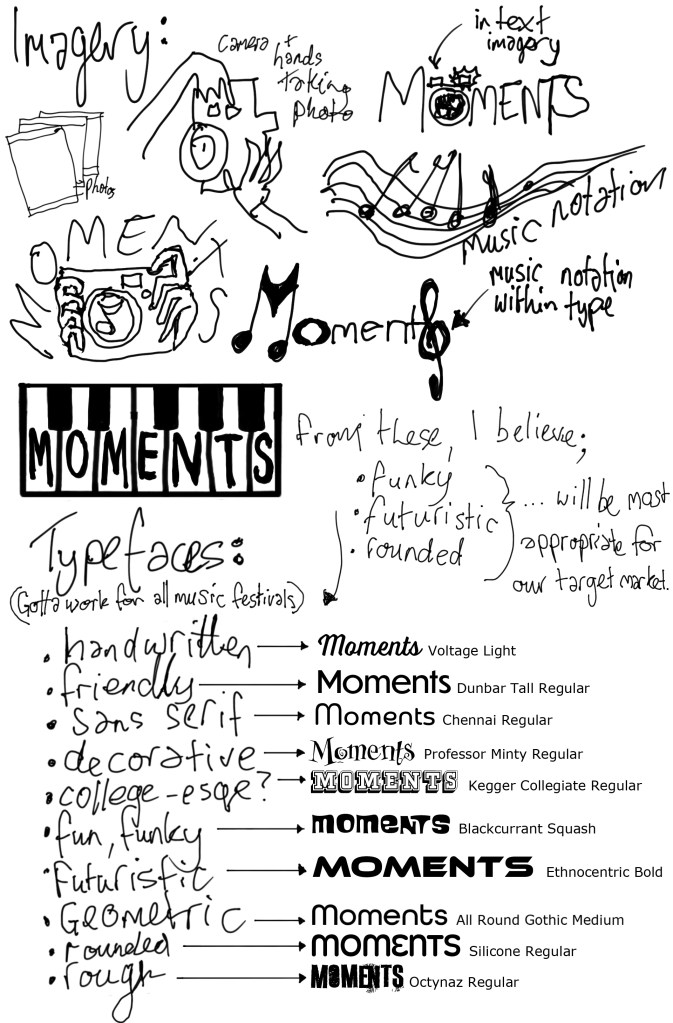 Imagery:
Camera +
hands
taking
photo
in text
imagery
MOMENTS
photos
music notation
MOMENTS
music notation
within type
Moments
MOMENTS
from these, I believe;
• funky
• futuristic
• rounded
... will be most
appropriate for
our target market.
Typefaces:
(Gotta work for all music festivals)
• handwritten
Moments Voltage Light
• friendly
Moments Dunbar Tall Regular
• sans serif
Moments Chennai Regular
• decorative
Moments Professor Minty Regular
• college-esqe?
MOMENTS Kegger Collegiate Regular
• fun, funky
moments Blackcurrant Squash
• Futuristic
MOMENTS Ethnocentric Bold
• Geometric
Moments All Round Gothic Medium
• rounded
MOMENTS Silicone Regular
• rough
MOMENTS Octynaz Regular